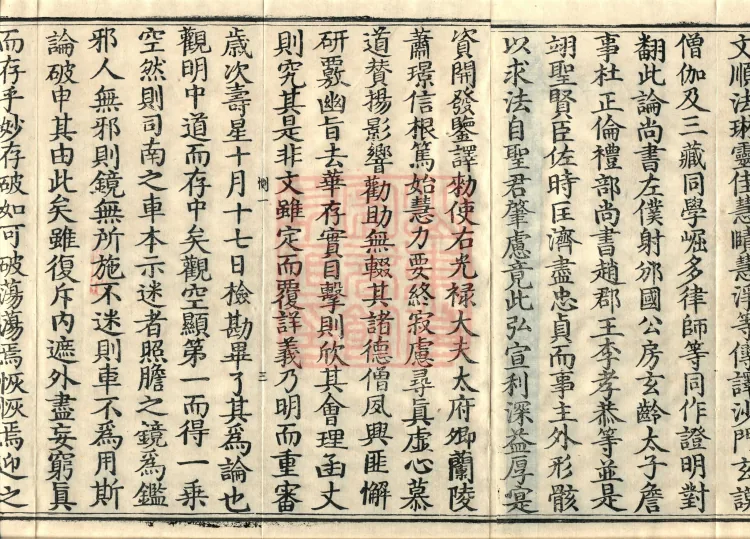 文順法琳靈佳慧賾慧淨等傳譯沙門玄謨
僧伽及三藏同學崛多律師等同作證明對
翻此論尚書左僕射邠國公房玄齡太子詹
事杜正倫禮部尚書趙郡王李孝恭等並是
翊聖賢臣佐時匡濟盡忠貞而事主外形骸
以求法自聖君肇慮竟此弘宣利深益厚寔
資開發鑒譯勅使右光禄大夫太府卿蘭陵
蕭璟信根篤始慧力要終寂慮尋真虛心慕
道贊揚影響勸助無輟其諸德僧夙興匪懈
研覈幽旨去華存實目擊則欣其會理函丈
則究其是非文雖定而覆詳義乃明而重審
一 三
歲次壽星十月十七日檢勘畢了其爲論也
觀明中道而存中矣觀空顯第一而得一乗
空然則司南之車本示迷者照膽之鏡爲鑑
邪人無邪則鏡無所施不迷則車不爲用斯
論破申其由此矣雖復斥内遮外盡妄窮真
而存乎妙存破如可破蕩蕩焉恢恢焉迎之